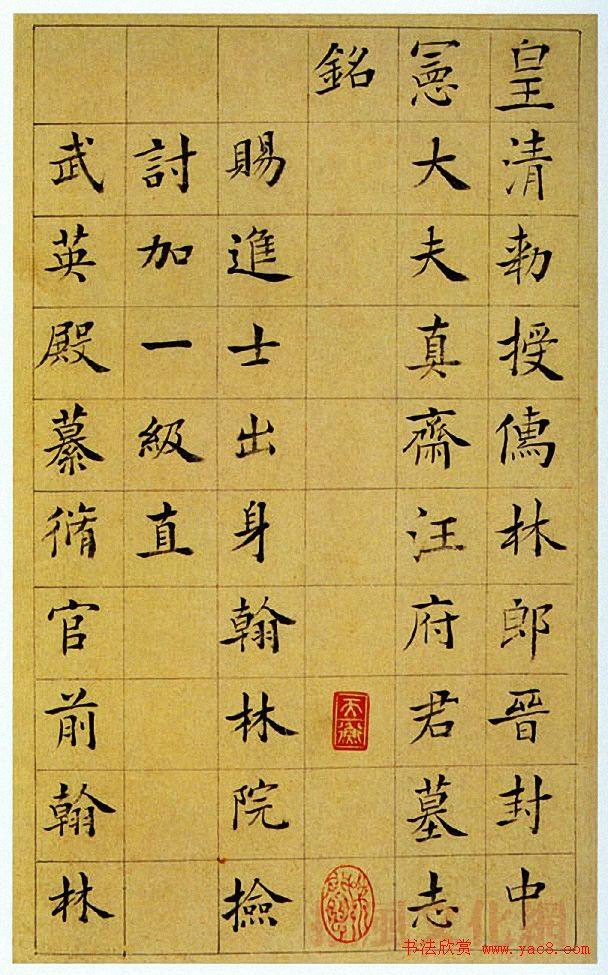 皇清勅授儒林郎晉封中
憲大夫真齋汪府君墓志
銘
賜進士出身翰林院撿
討加一級直
武英殿纂脩官前翰林
书法欣赏 www.yac8.com